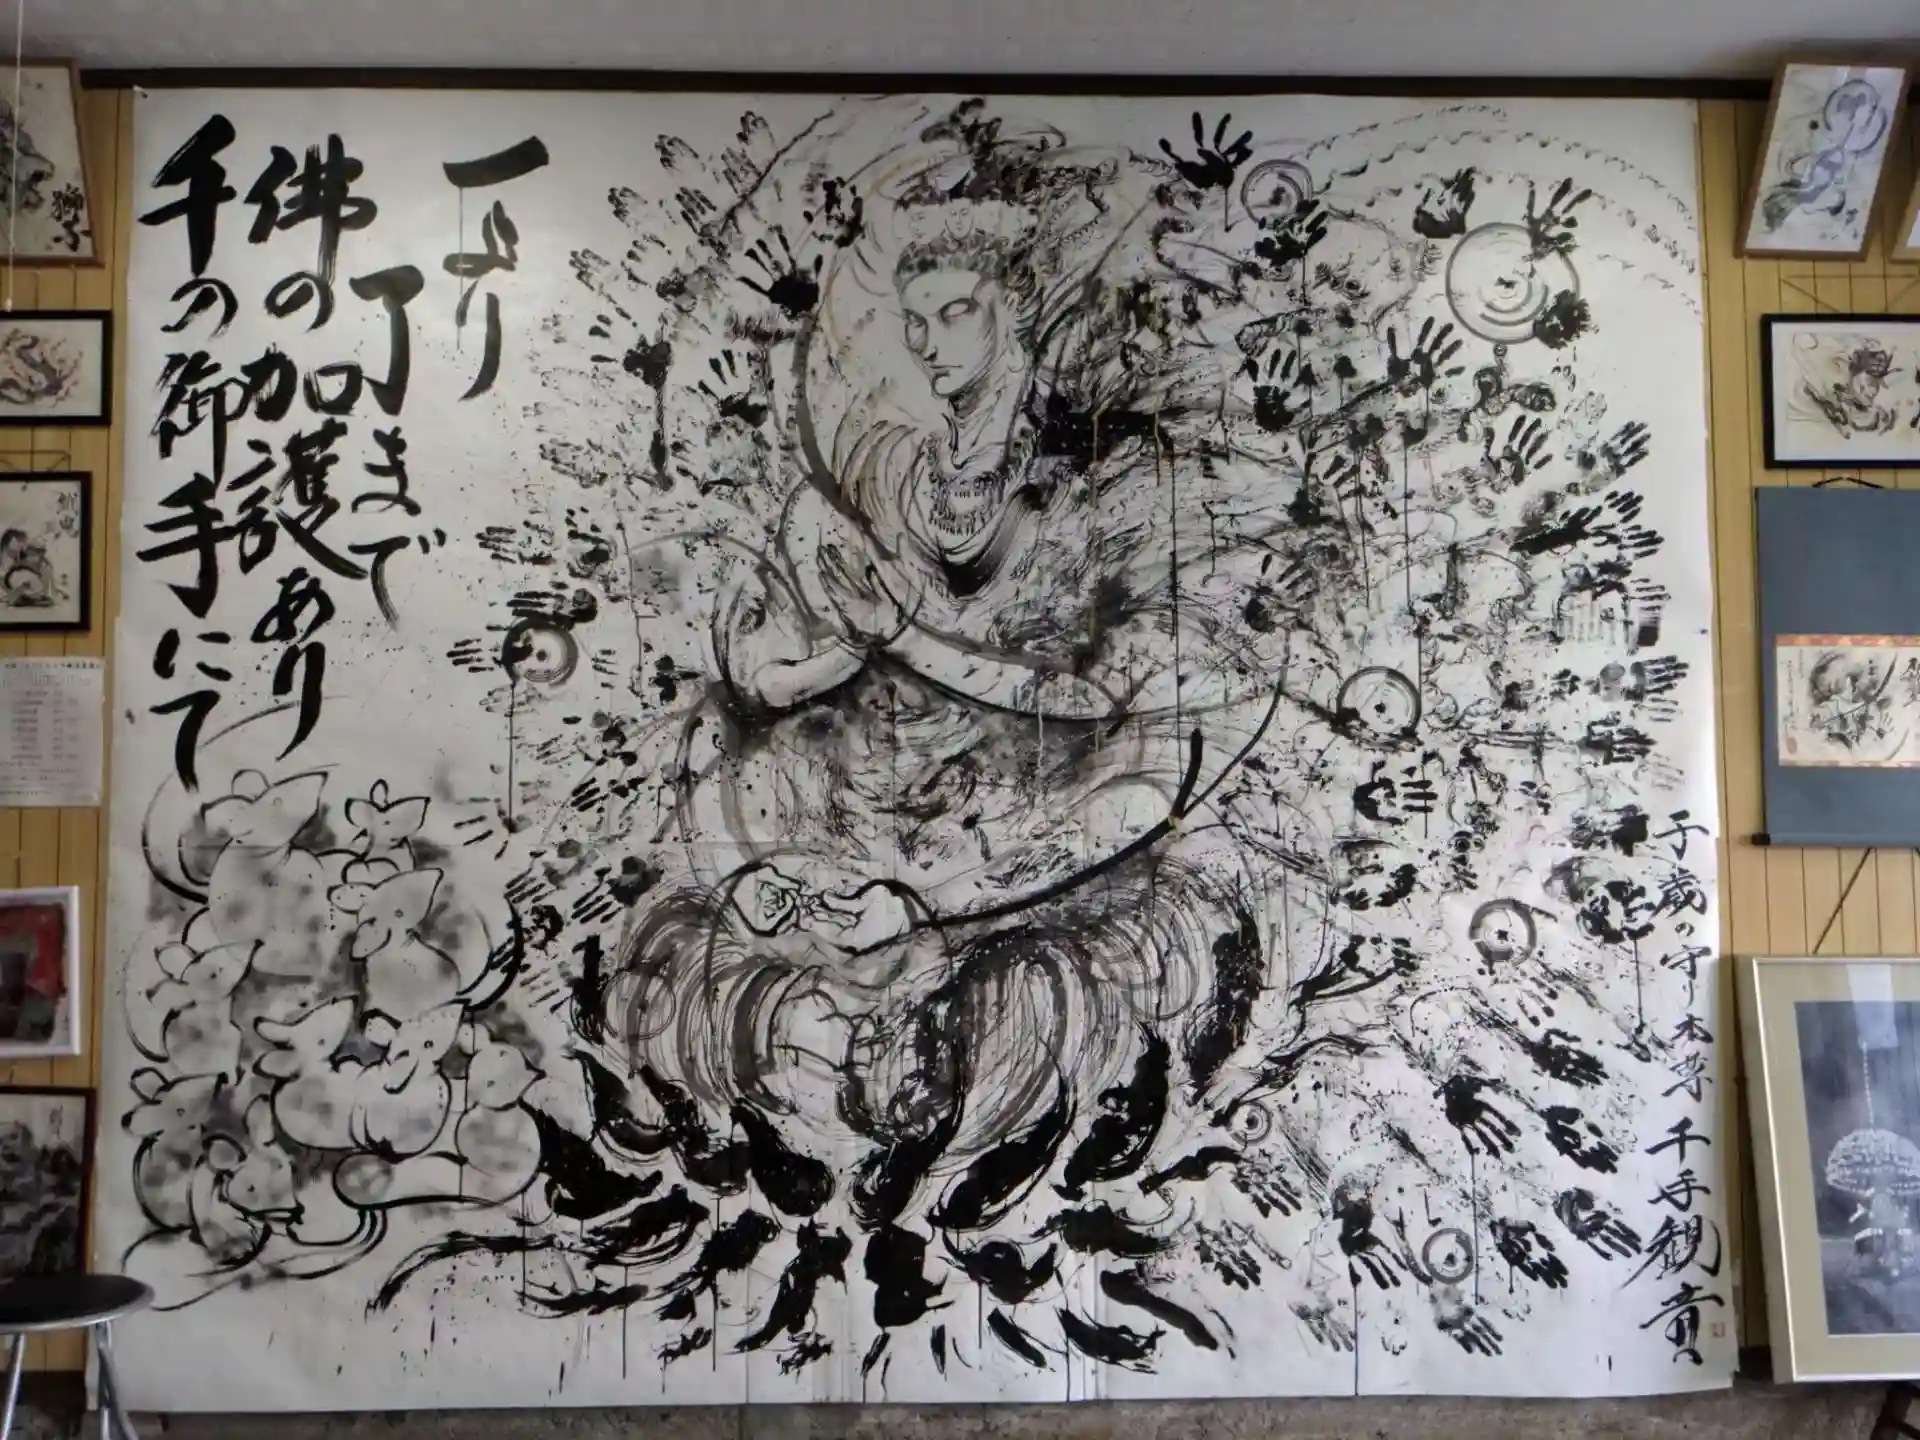 一より
了まで
佛の加護あり
千の御手にて
子歳の守り本尊 千手観音
獅子